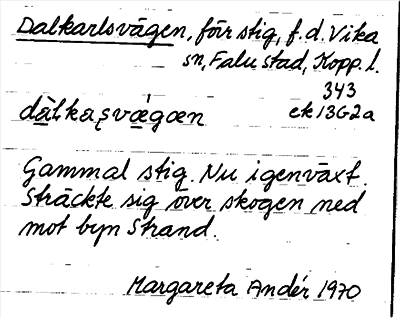 Dalkarlsvägen, förr stig, f.d. Vika
sn, Falu stad, Kopp. l.
343
ek 13G2a
Gammal stig. Nu igenväxt.
Sträckte sig över skogen ned
mot byn Strand.
Margareta Andér 1970